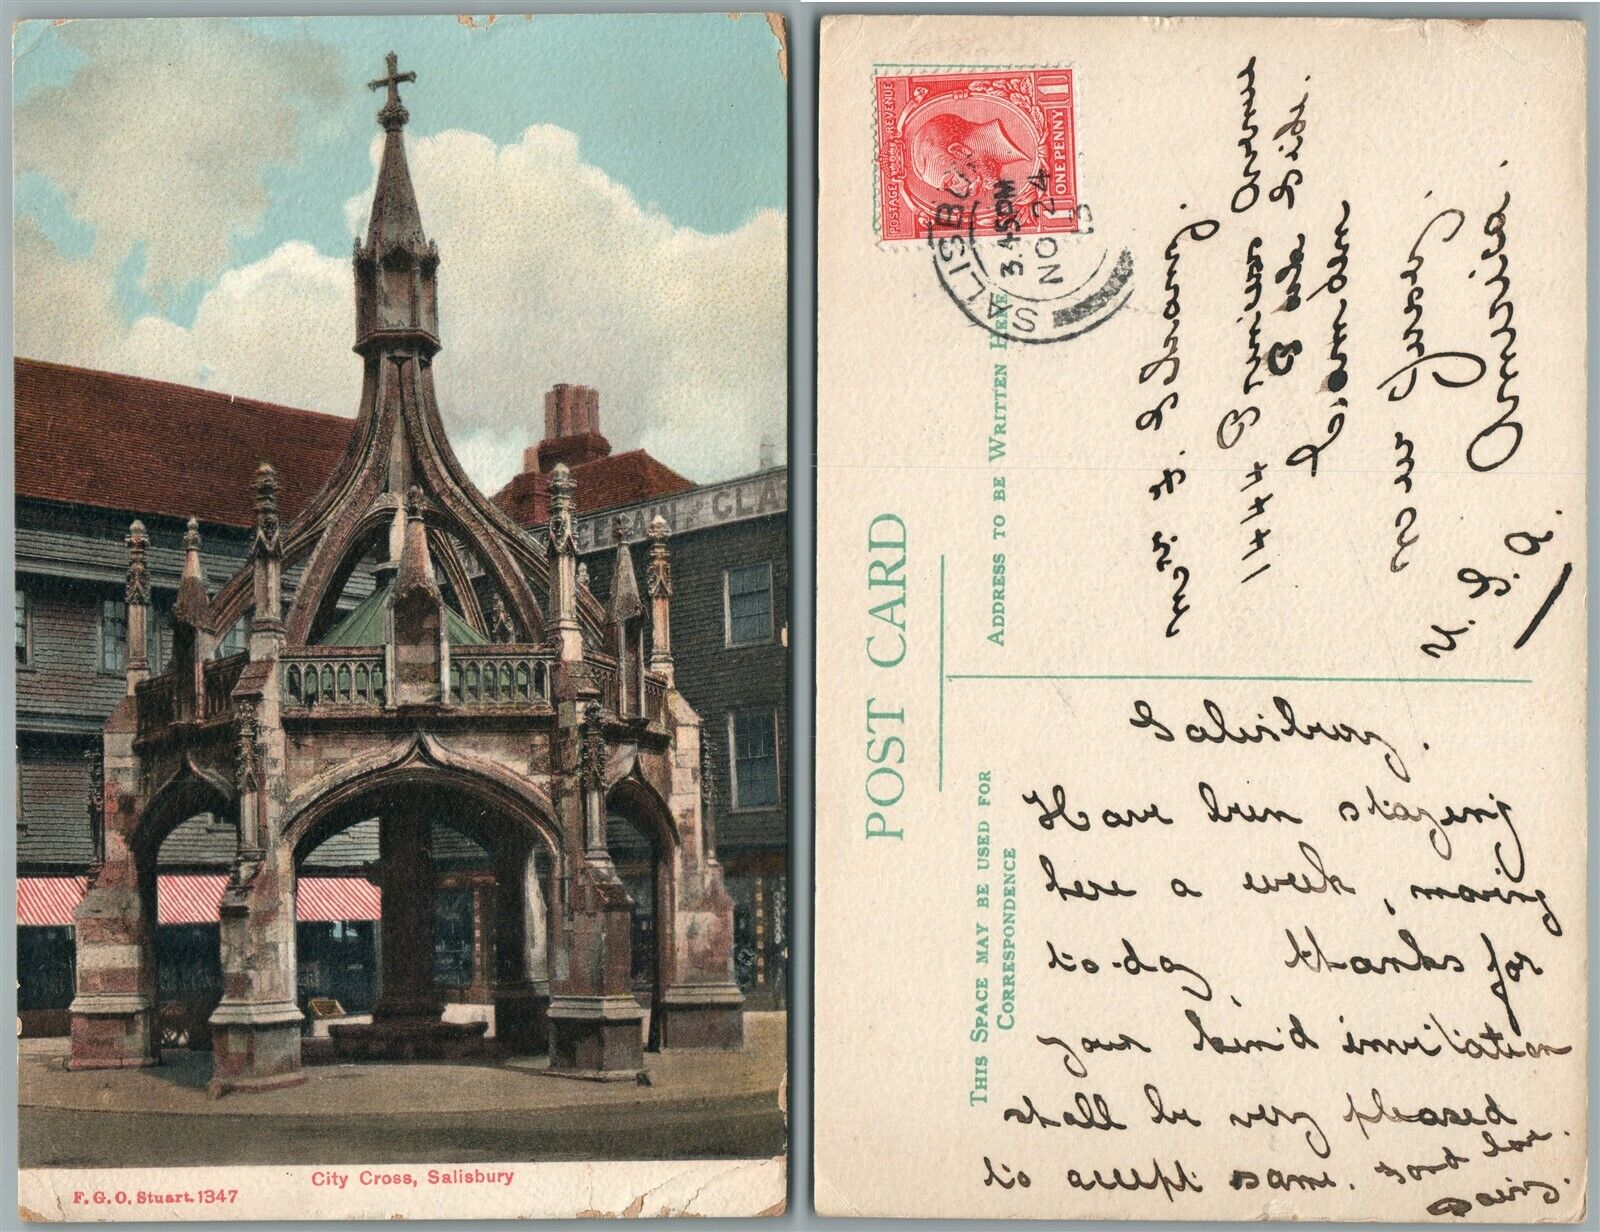 City Cross, Salisbury
F.G.O. Stuart. 1347
GRAIN CLA
POST CARD
THIS SPACE MAY BE USED FOR
CORRESPONDENCE
ADDRESS TO BE WRITTEN HERE
POSTAGE REVENUE
ONE PENNY
SALISBU
3.45PM
NO 24
13
1444
Avenue
Side.
Camden
New Jersey.
U. S. A. America.
Salisbury.
Have been staying
here a week, moving
to-day, thanks for
your kind invitation
shall be very pleased
to accept same. Good love.